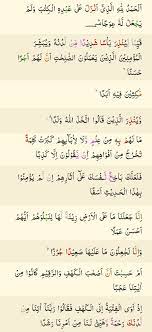 ٱلْحَمْدُ لِلَّهِ ٱلَّذِىٓ أَنزَلَ عَلَىٰ عَبْدِهِ ٱلْكِتَٰبَ وَلَمْ
يَجْعَل لَّهُۥ عِوَجَاۜ
قَيِّمًا لِّيُنذِرَ بَأْسًا شَدِيدًا مِّن لَّدُنْهُ وَيُبَشِّرَ
ٱلْمُؤْمِنِينَ ٱلَّذِينَ يَعْمَلُونَ ٱلصَّٰلِحَٰتِ أَنَّ لَهُمْ أَجْرًا
حَسَنًا
مَّٰكِثِينَ فِيهِ أَبَدًا
وَيُنذِرَ ٱلَّذِينَ قَالُوا۟ ٱتَّخَذَ ٱللَّهُ وَلَدًا
مَّا لَهُم بِهِۦ مِنْ عِلْمٍ وَلَا لِـَٔابَآئِهِمْ كَبُرَتْ كَلِمَةً
تَخْرُجُ مِنْ أَفْوَٰهِهِمْ إِن يَقُولُونَ إِلَّا كَذِبًا
فَلَعَلَّكَ بَٰخِعٌ نَّفْسَكَ عَلَىٰٓ ءَاثَٰرِهِمْ إِن لَّمْ يُؤْمِنُوا۟
بِهَٰذَا ٱلْحَدِيثِ أَسَفًا
إِنَّا جَعَلْنَا مَا عَلَى ٱلْأَرْضِ زِينَةً لَّهَا لِنَبْلُوَهُمْ أَيُّهُمْ
أَحْسَنُ عَمَلًا
وَإِنَّا لَجَٰعِلُونَ مَا عَلَيْهَا صَعِيدًا جُرُزًا
أَمْ حَسِبْتَ أَنَّ أَصْحَٰبَ ٱلْكَهْفِ وَٱلرَّقِيمِ كَانُوا۟ مِنْ
ءَايَٰتِنَا عَجَبًا
إِذْ أَوَى ٱلْفِتْيَةُ إِلَى ٱلْكَهْفِ فَقَالُوا۟ رَبَّنَآ ءَاتِنَا مِن
لَّدُنكَ رَحْمَةً وَهَيِّئْ لَنَا مِنْ أَمْرِنَا رَشَدًا